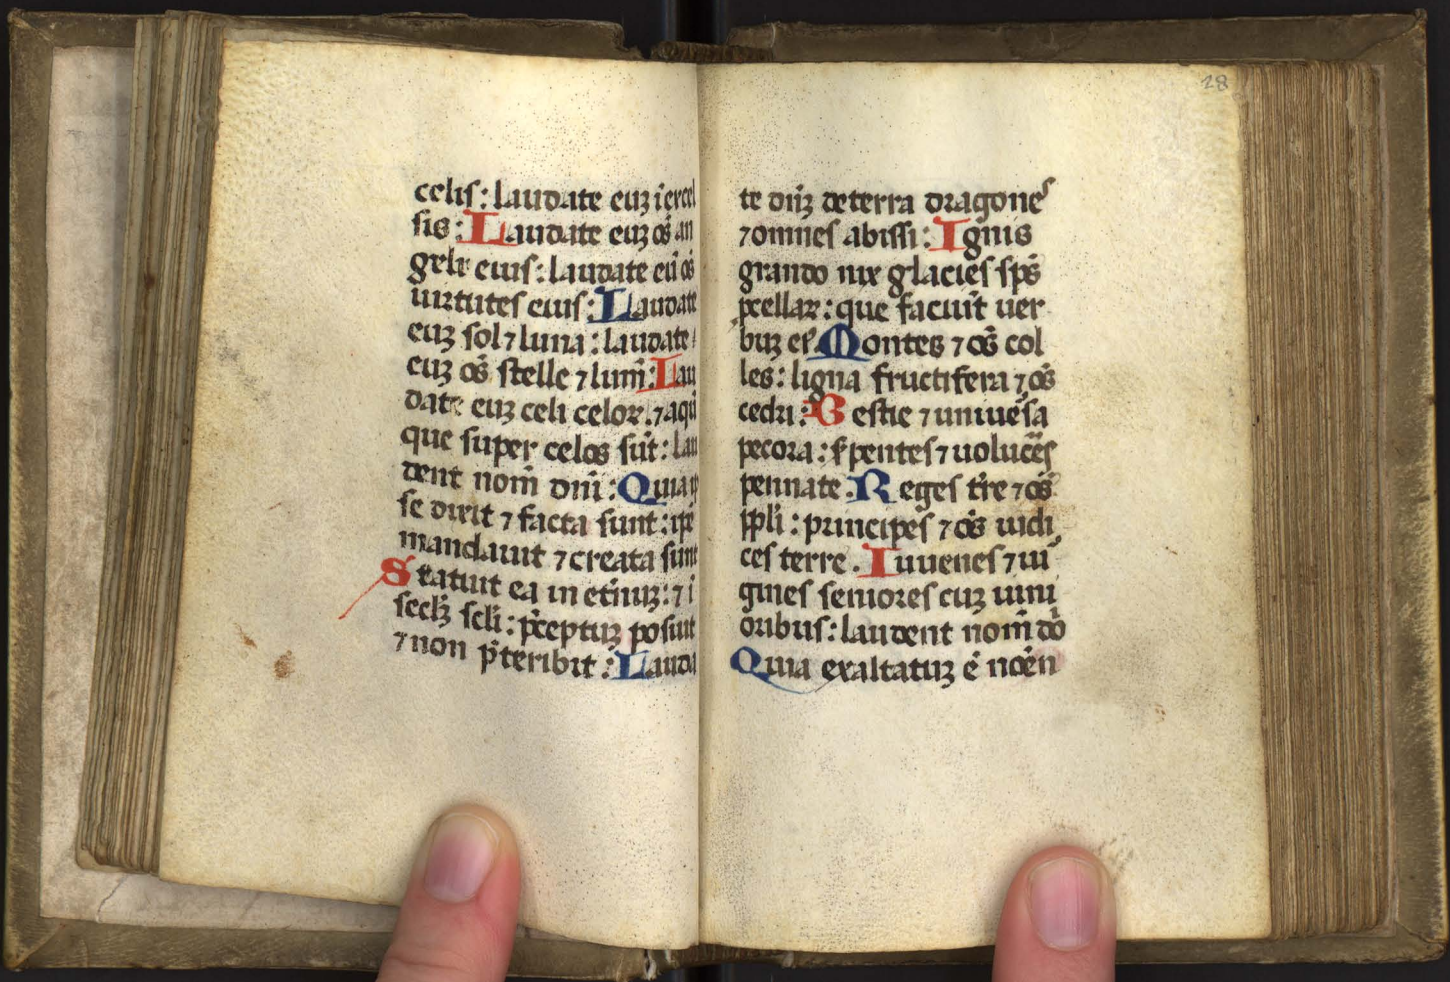 celis: laudate euʒ i excel
sis: Laudate euʒ oṡ an
geli eius: laudate eū oṡ
uirtutes eius: Laudate
euʒ sol ⁊ luna: laudate
euʒ oṡ stelle ⁊ lum̄: Lau
date euʒ celi celoꝝ. ⁊ aqu
que super celos sūt: lau
dent nom̄ dn̄i: Quia ip
se dixit ⁊ facta sunt: ip̄e
mandauit ⁊ creata sunt
Statuit ea in et̄nuʒ: ⁊ i
secl̄ʒ scl̄i: p̄ceptuʒ posuit
⁊ non p̄teribit: Lauda
28
te dn̄ʒ de terra dragones
⁊ omnes abissi: Ignis
grando nix glacies sp̄s
ꝓcellaꝝ: que faciūt uer
buʒ eiꝰ Montes ⁊ oṡ col
les: ligna fructifera ⁊ oṡ
cedri: Bestie ⁊ uniu̓sa
pecora: s̓pentes ⁊ uoluc̄es
pennate. Reges t̄re ⁊ oṡ
pp̄li: principes ⁊ oṡ iudi
ces terre. Iuuenes ⁊ uī
gines seniores cuʒ iuni
oribus: laudent nom̄ dō
Quia exaltatuʒ ē noēn